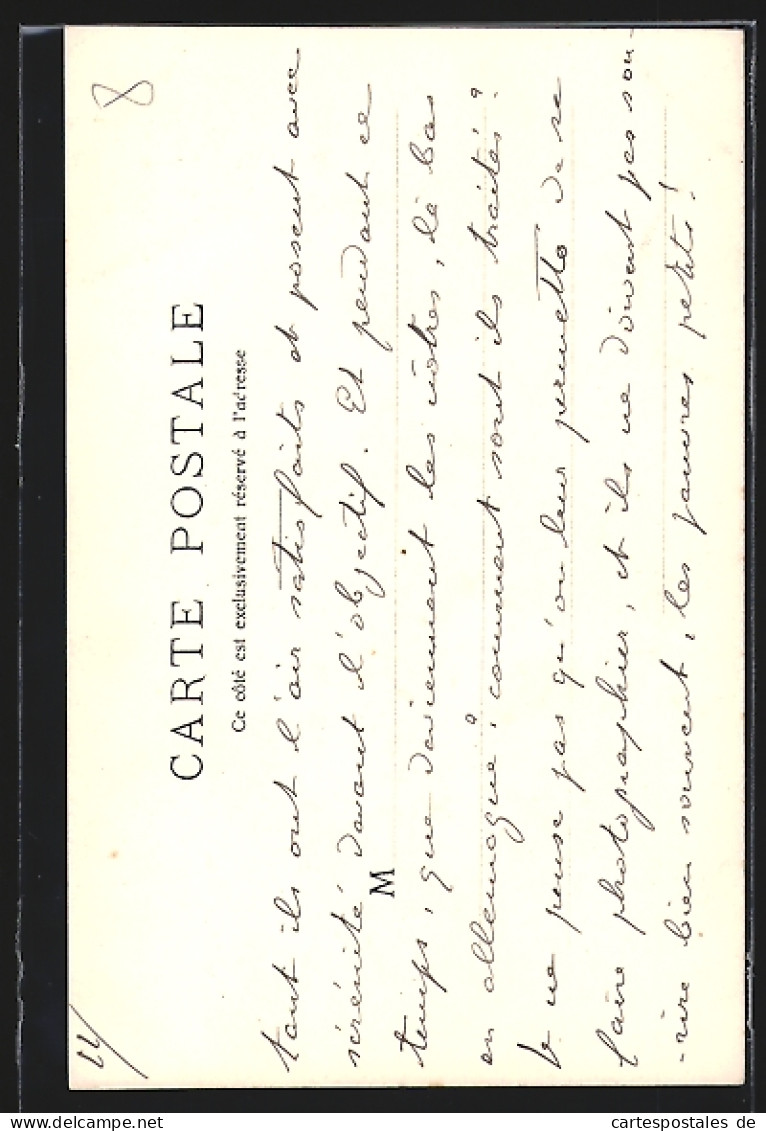 8
22/
CARTE POSTALE
Ce côté est exclusivement réservé à l'adresse
M
tant ils ont l'air satisfaits et posent avec
sérénité devant l'objectif. Et pendant ce
temps, que deviennent les nôtres, là bas
en allemagne, comment sont ils traités?
ne pense pas qu'on leur permette de se
faire photographier, et ils ne doivent pas sou-
-rire bien souvent, les pauvres petits!
cartespostales de